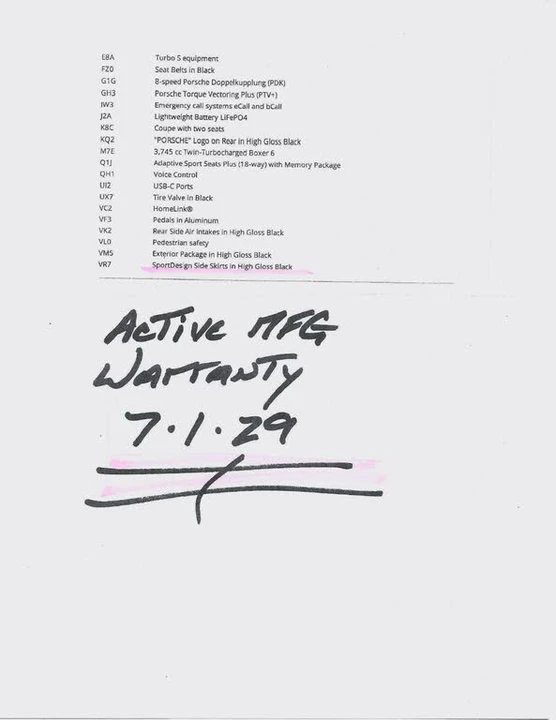 E8A Turbo S equipment
FZ0 Seat Belts in Black
G1G 8-speed Porsche Doppelkupplung (PDK)
GH3 Porsche Torque Vectoring Plus (PTV+)
IW3 Emergency call systems eCall and bCall
J2A Lightweight Battery LiFePO4
K8C Coupe with two seats
KQ2 "PORSCHE" Logo on Rear in High Gloss Black
M7E 3,745 cc Twin-Turbocharged Boxer 6
Q1J Adaptive Sport Seats Plus (18-way) with Memory Package
QH1 Voice Control
UI2 USB-C Ports
UX7 Tire Valve in Black
VC2 HomeLink®
VF3 Pedals in Aluminum
VK2 Rear Side Air Intakes in High Gloss Black
VL0 Pedestrian safety
VM5 Exterior Package in High Gloss Black
VR7 SportDesign Side Skirts in High Gloss Black
ACTIVE MFG
WARRANTY
7.1.29